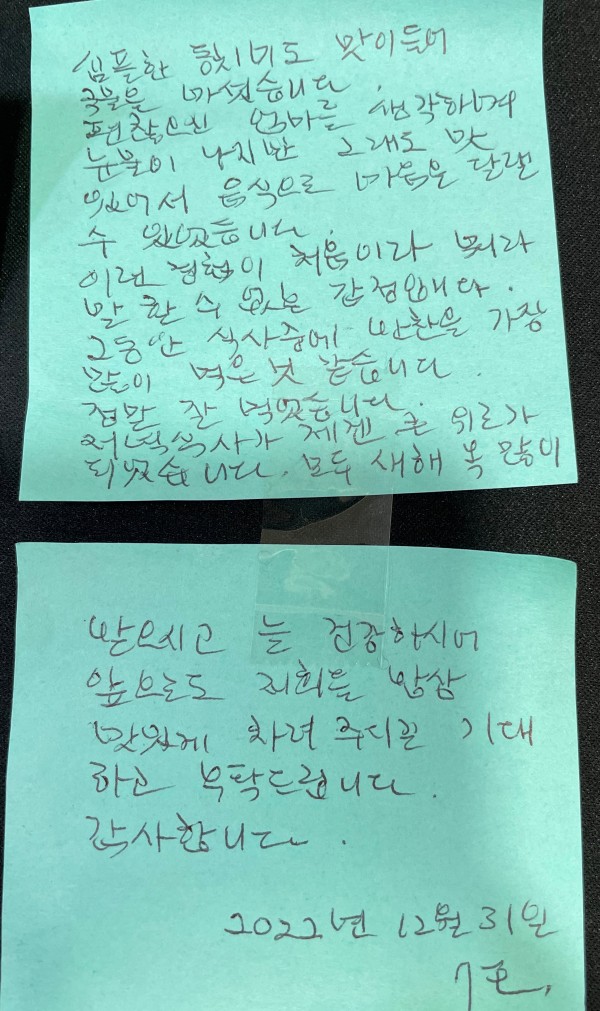 심플한 동치미도 맛이들어
국물을 마셨습니다.
편찮으신 엄마를 생각하며
눈물이 나지만 그래도 맛
있어서 음식으로 마음을 달랠
수 있었습니다.
이런 경험이 처음이라 뭐라
말 할 수 없는 감정입니다.
그동안 식사중에 반찬을 가장
많이 먹은 것 같습니다.
정말 잘 먹었습니다.
저녁식사가 제겐 큰 위로가
되었습니다. 모두 새해 복 많이
받으시고 늘 건강하시어
앞으로도 저희들 밥상
맛있게 차려 주디끼 기대
하고 부탁드립니다.
감사합니다.
2022년 12월 31일